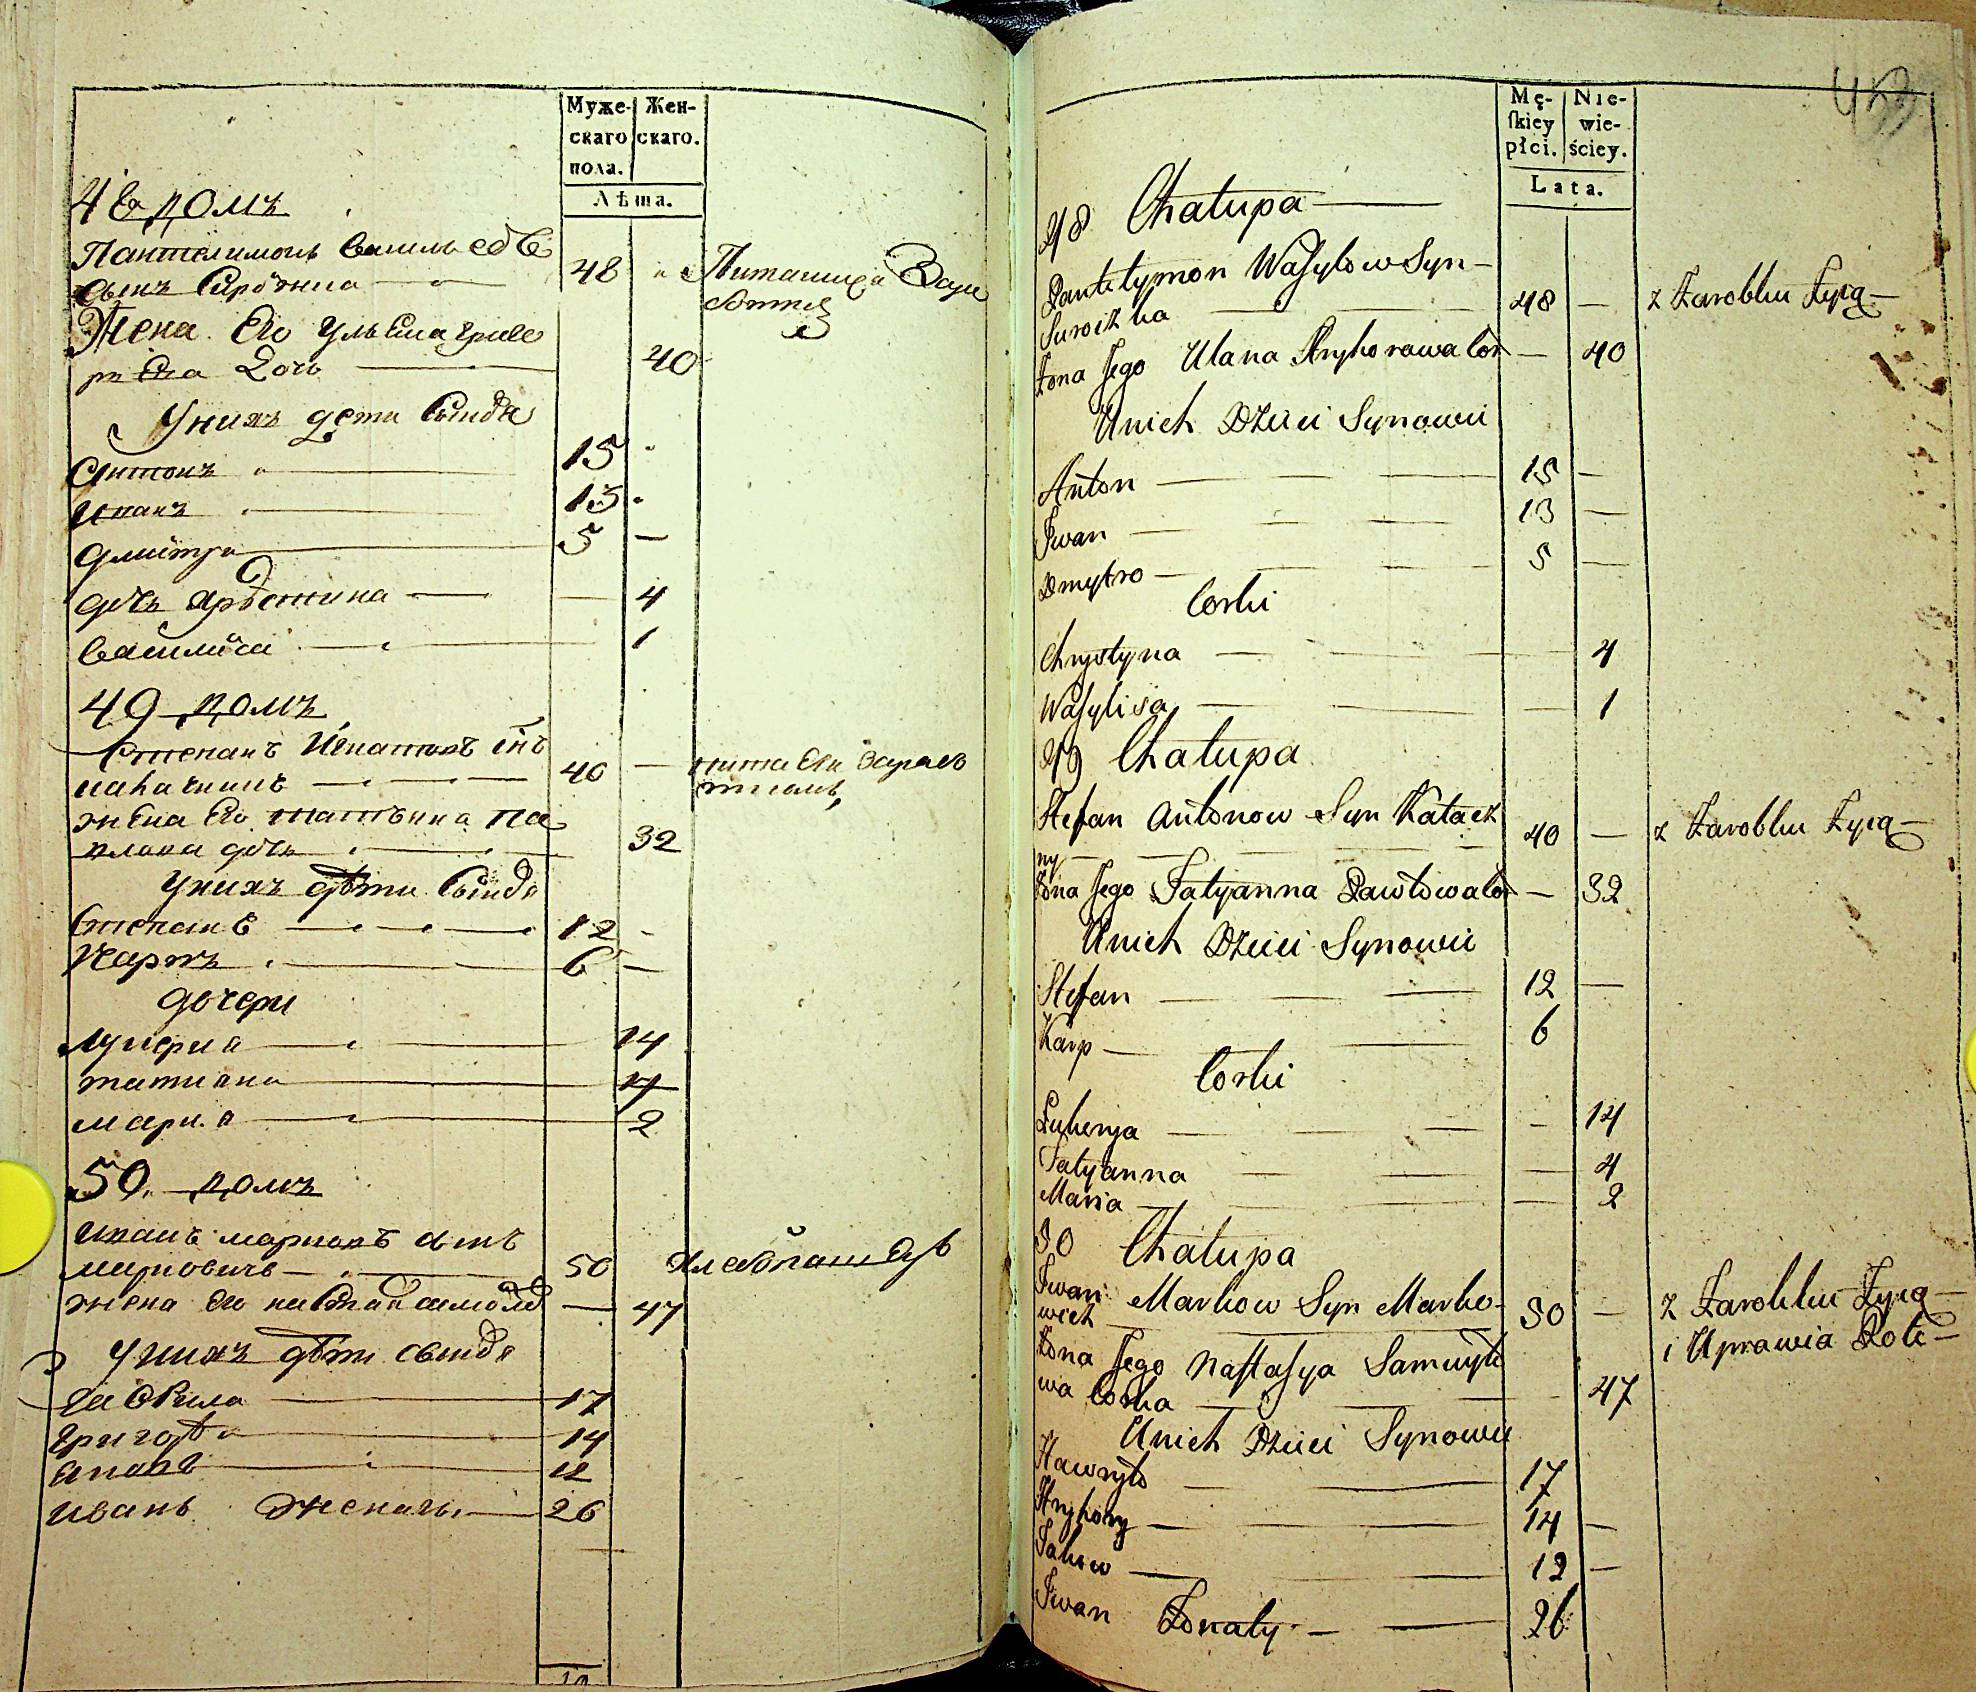 Муже-
скаго
пола.
Жен-
скаго.
Лѣта.
48 домъ
Пантелимонъ Василь
сынъ 48
Жена Его Ульяна
дочь 40
У нихъ дети сынове
Антонъ 15
Иванъ 13
Дмитро 5
дочь Христина 4
Василиса 1
49 домъ
Степанъ снъ
40 питаетъ
жена Его татьяна па
влова дочь 32
У нихъ дѣти Сынове
Степанъ 12
Карпъ 6
дочери
Лукеря 14
татияна 4
мария 2
50 домъ
Иванъ марковъ сынъ
марковичъ 50
жена Его 47
У нихъ дѣти сынове
Гаврила 17
Григорѣ 14
Яковъ 12
Иванъ женатъ 26
453
Mę-
ſkiey
płci.
Nie-
wie-
ściey.
Lata.
48 Chałupa
Pantelymon Wasylow Syn
Suroizka 48 — z Zarobku Żyią
Żona Jego Ulana Hryhorowa Cor — 40
U nich Dzieci Synowii
Anton 15 —
Jwan 13 —
Dmytro 5 —
Corki
Chrystyna 4
Wasylisa — 1
49 Chałupa
Stefan Antonow Syn Katacz
ny 40 — z Zarobku Żyią
Żona Jego Tatyanna Pawłowa Cor — 32
U nich Dzieci Synowii
Stefan 12 —
Karp 6
Corki
Łukerya — 14
Tatyanna — 4
Maria — 2
50 Chałupa
Jwan Markow Syn Marko-
wich 50 — z Zarobku Żyią
i Uprawia Role
Żona Jego Nastasya Samuyło
wa Corka — 47
U nich Dzieci Synowii
Hawryło 17
Hryhory 14 —
Jakow 12 —
Jwan Żonaty 26